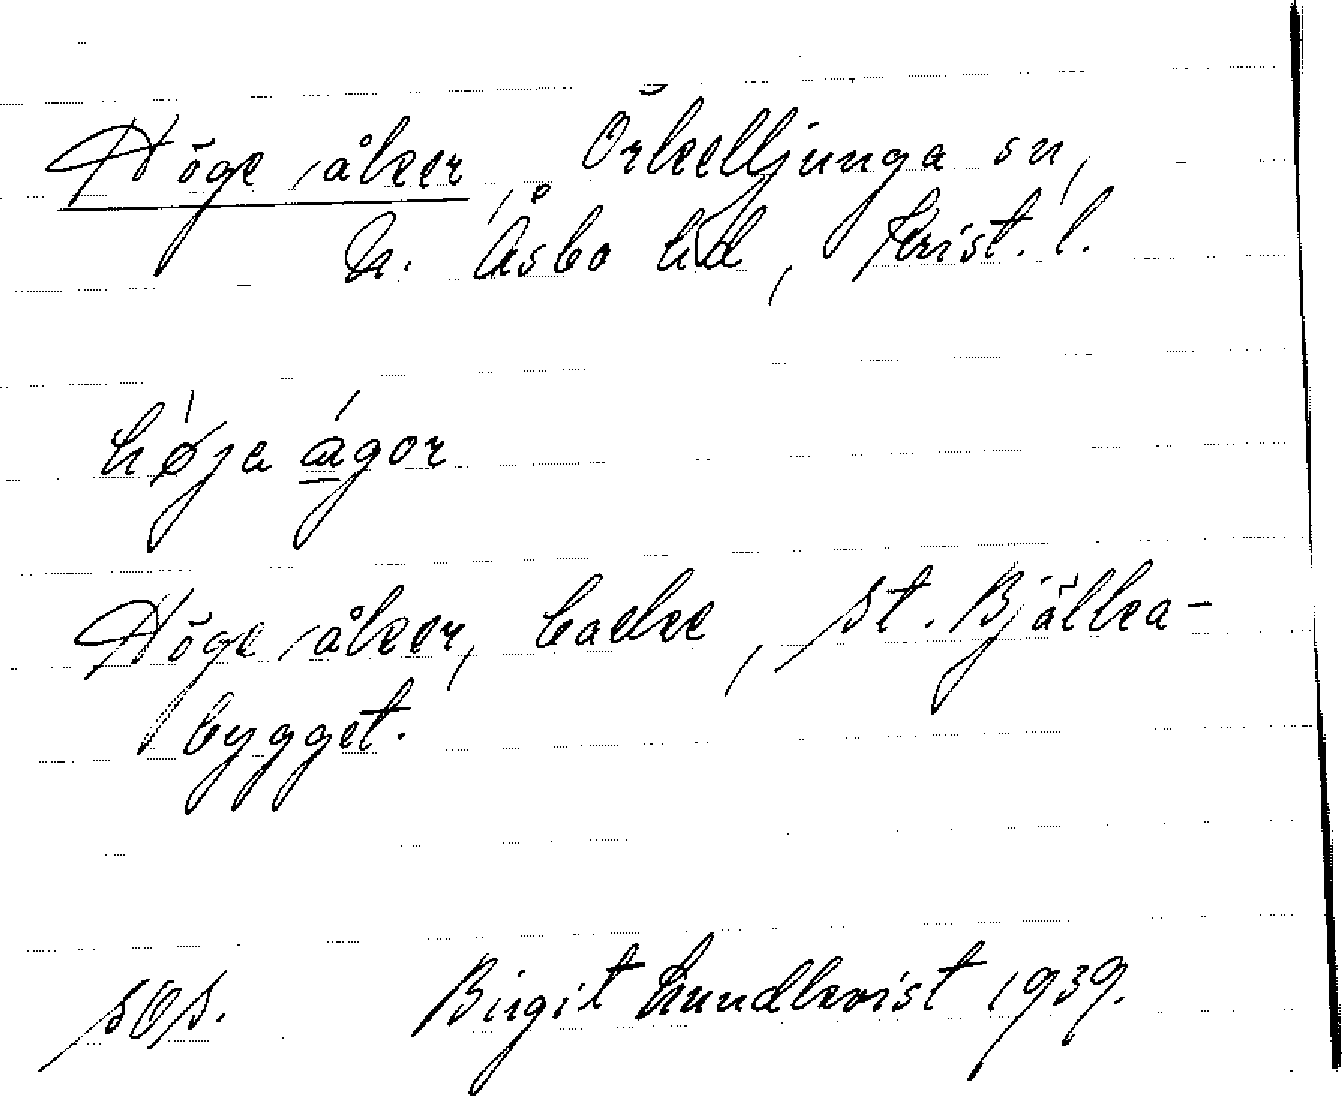 Höge åker, Örkelljunga sn,
N. Åsbo hd, Krist. l.
høja ágor
Höge åker, backe, St. Bjälka-
bygget.
sOs. Birgit Lundkvist 1939.